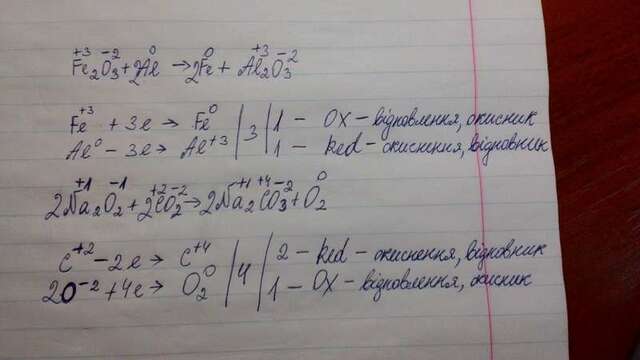 +3 -2 0 0 +3 -2
Fe₂O₃ + 2Al → 2Fe + Al₂O₃
Fe⁺³ + 3e → Fe⁰ | 3 | 1 – Ox – відновлення, окисник
Al⁰ – 3e → Al⁺³ | | 1 – Red – окиснення, відновник
+1 -1 +2 -2 +1 +4 -2 0
2Na₂O₂ + 2CO₂ → 2Na₂CO₃ + O₂
C⁺² – 2e → C⁺⁴ | 4 | 2 – Red – окиснення, відновник
2O⁻² + 4e → O₂⁰ | | 1 – Ox – відновлення, окисник